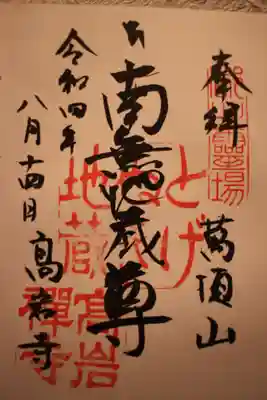 奉拝
萬頂山
南無地蔵尊
令和四年
八月十四日
高岩寺
とげぬき地蔵
高岩禪寺